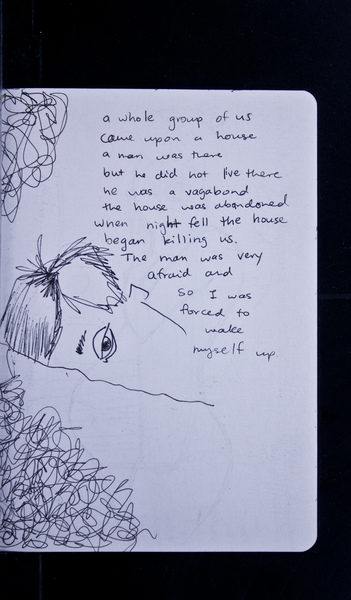 a whole group of us
came upon a house
a man was there
but he did not live there
he was a vagabond
the house was abandoned
when night fell the house
began killing us.
The man was very
afraid and
so I was
forced to
wake
myself up.